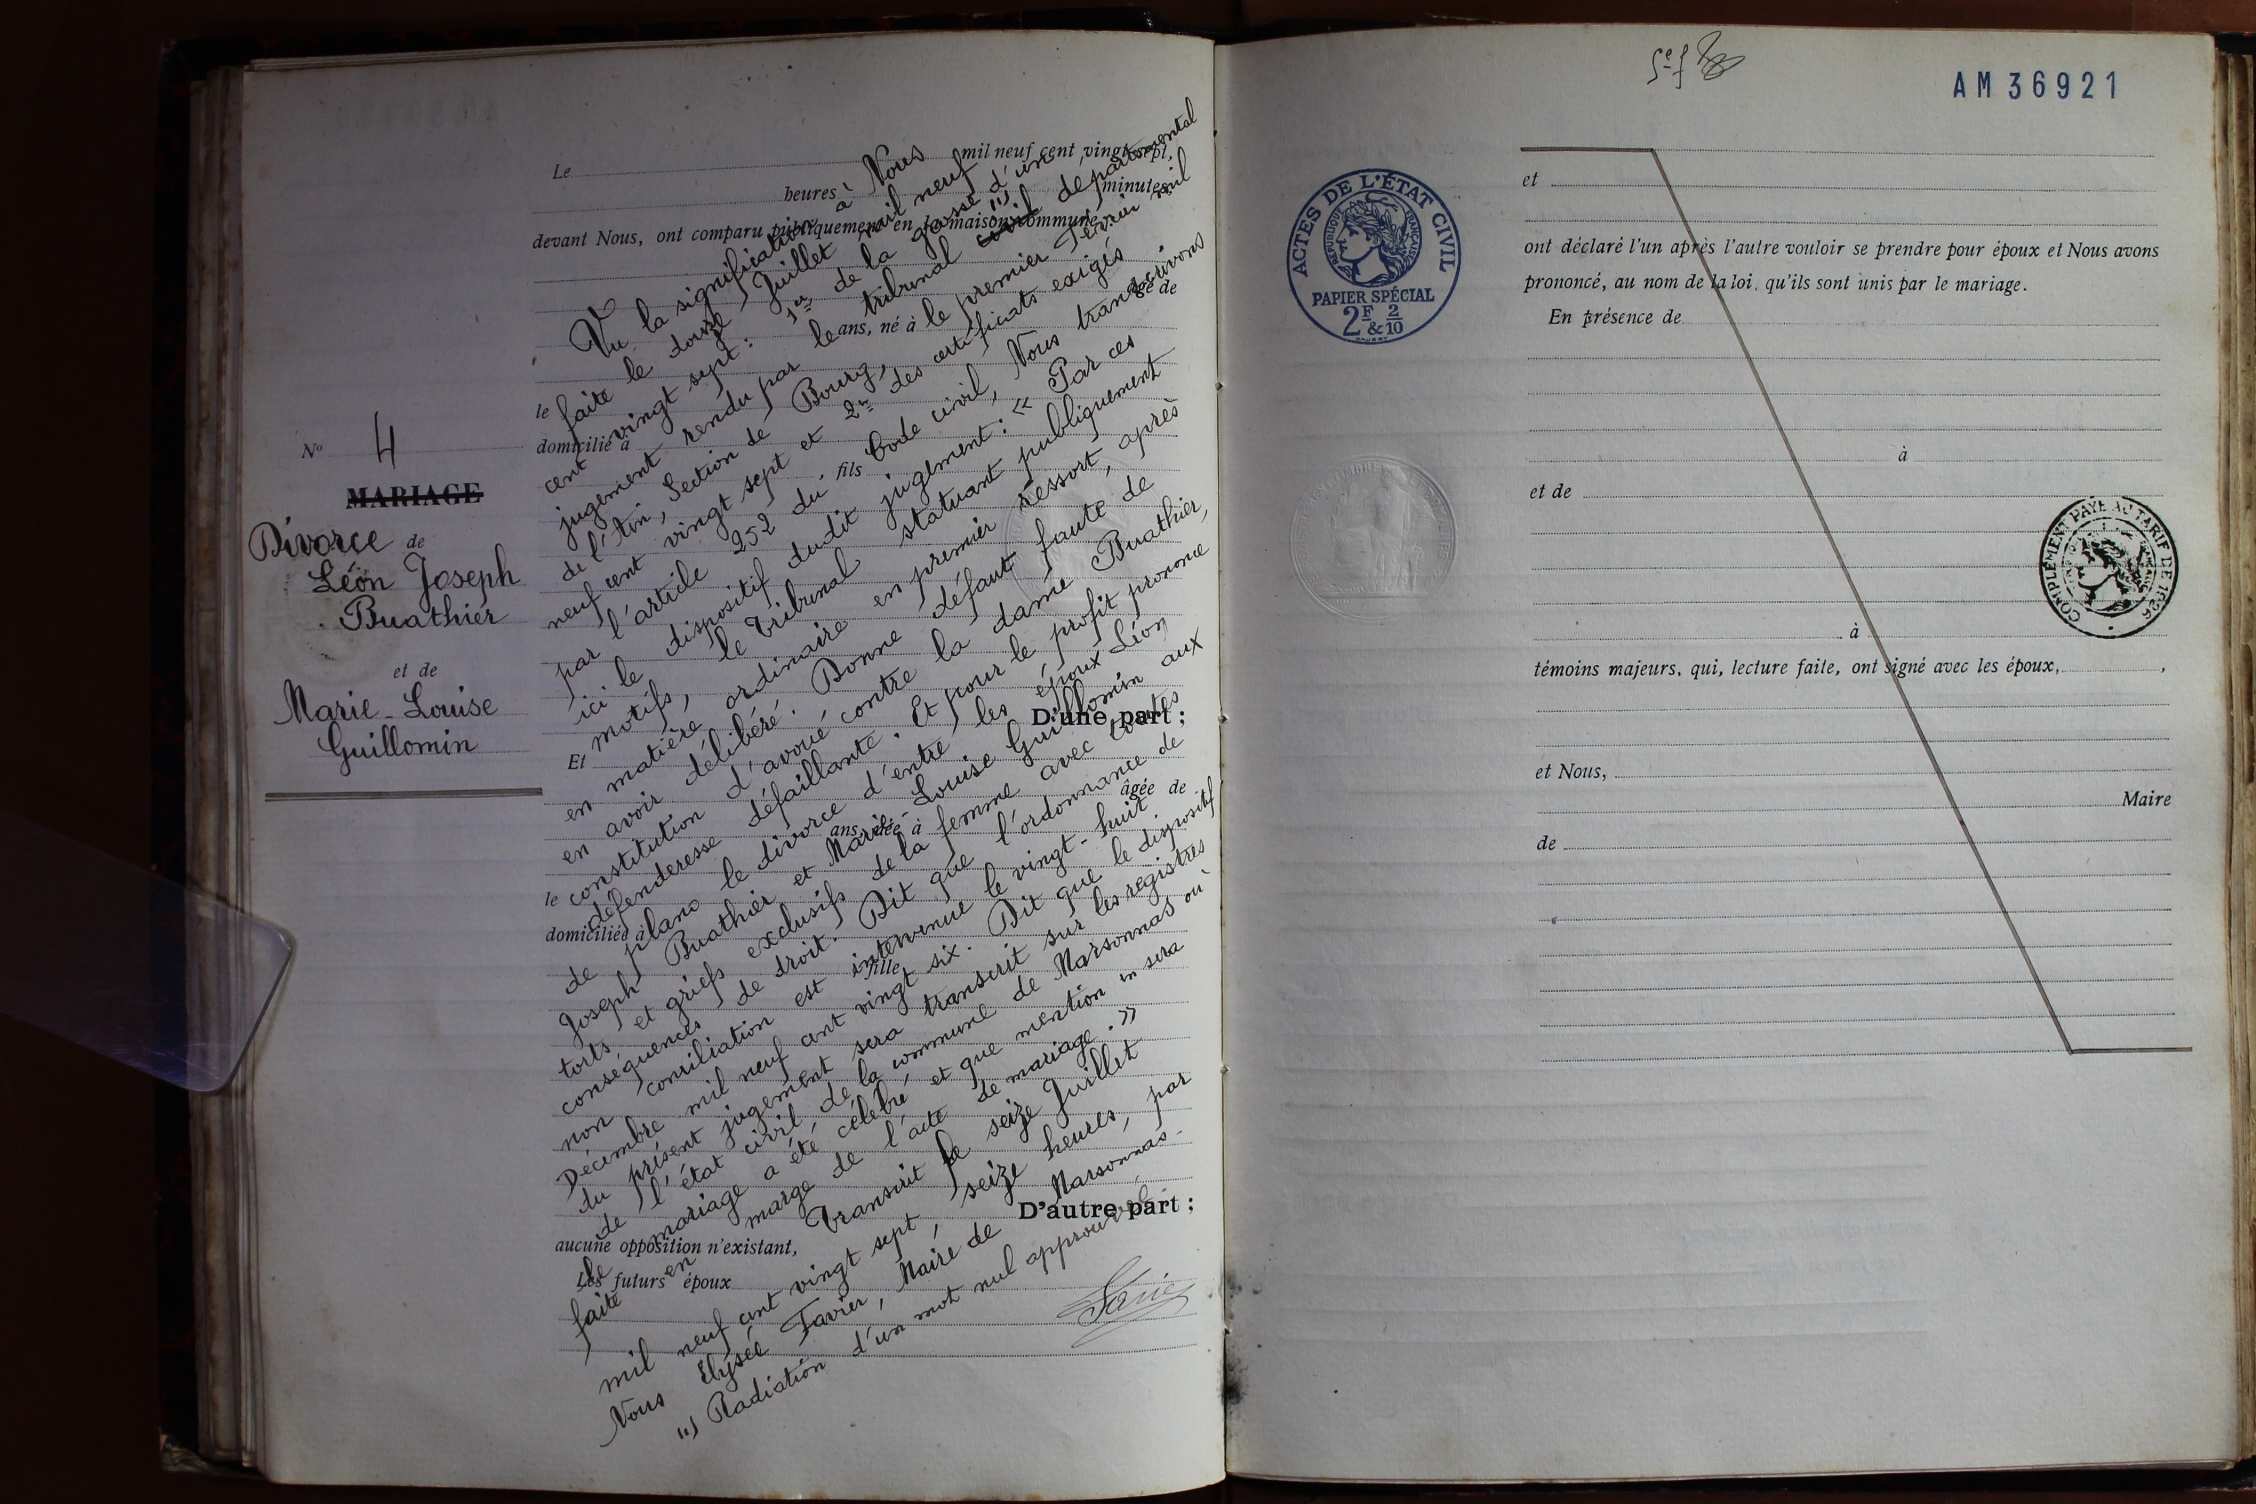 Nº 4
MARIAGE
Divorce de
Léon Joseph
Buathier
et de
Marie-Louise
Guillomin
Le mil neuf cent vingt-sept,
heures minutes
devant Nous, ont comparu publiquement en la maison commune
âgé de
ans, né à
le
domicilié à
fils
D'une part ;
Et
âgée de
ans, née à
le
domiciliée à
fille
D'autre part ;
aucune opposition n'existant,
Les futurs époux
Vu la signification à Nous
faite le douze Juillet mil neuf
cent vingt sept : 1er de la grosse d'un
jugement rendu par le tribunal civil (1) départemental
de l'Ain, Section de Bourg, le premier Février mil
neuf cent vingt sept et 2nt des certificats exigés
par l'article 252 du Code civil, Nous transcrivons
ici le dispositif dudit jugement : « Par ces
motifs, le Tribunal statuant publiquement
en matière ordinaire en premier ressort, après
en avoir délibéré. Donne défaut faute de
constitution d'avoué contre la dame Buathier,
défenderesse défaillante. Et pour le profit prononce
de plano le divorce d'entre les époux Léon
Joseph Buathier et Marie-Louise Guillomin aux
torts et griefs exclusifs de la femme avec toutes
conséquences de droit. Dit que l'ordonnance de
non conciliation est intervenue le vingt-huit
Décembre mil neuf cent vingt six. Dit que le dispositif
du présent jugement sera transcrit sur les registres
de l'état civil de la commune de Marsonnas où
le mariage a été célébré et que mention en sera
faite en marge de l'acte de mariage. »
Transcrit le seize Juillet
mil neuf cent vingt sept, seize heures, par
Nous Elysée Favier, Maire de Marsonnas.
(1) Radiation d'un mot nul approuvée.
AM 36921
ACTES DE L'ÉTAT CIVIL
RÉPUBLIQUE FRANÇAISE
PAPIER SPÉCIAL
2F & 2/10
et
ont déclaré l'un après l'autre vouloir se prendre pour époux et Nous avons
prononcé, au nom de la loi, qu'ils sont unis par le mariage.
En présence de
à
et de
COMPLÉMENT PAYÉ AU TARIF DE 1926
à
témoins majeurs, qui, lecture faite, ont signé avec les époux, ,
et Nous,
Maire
de